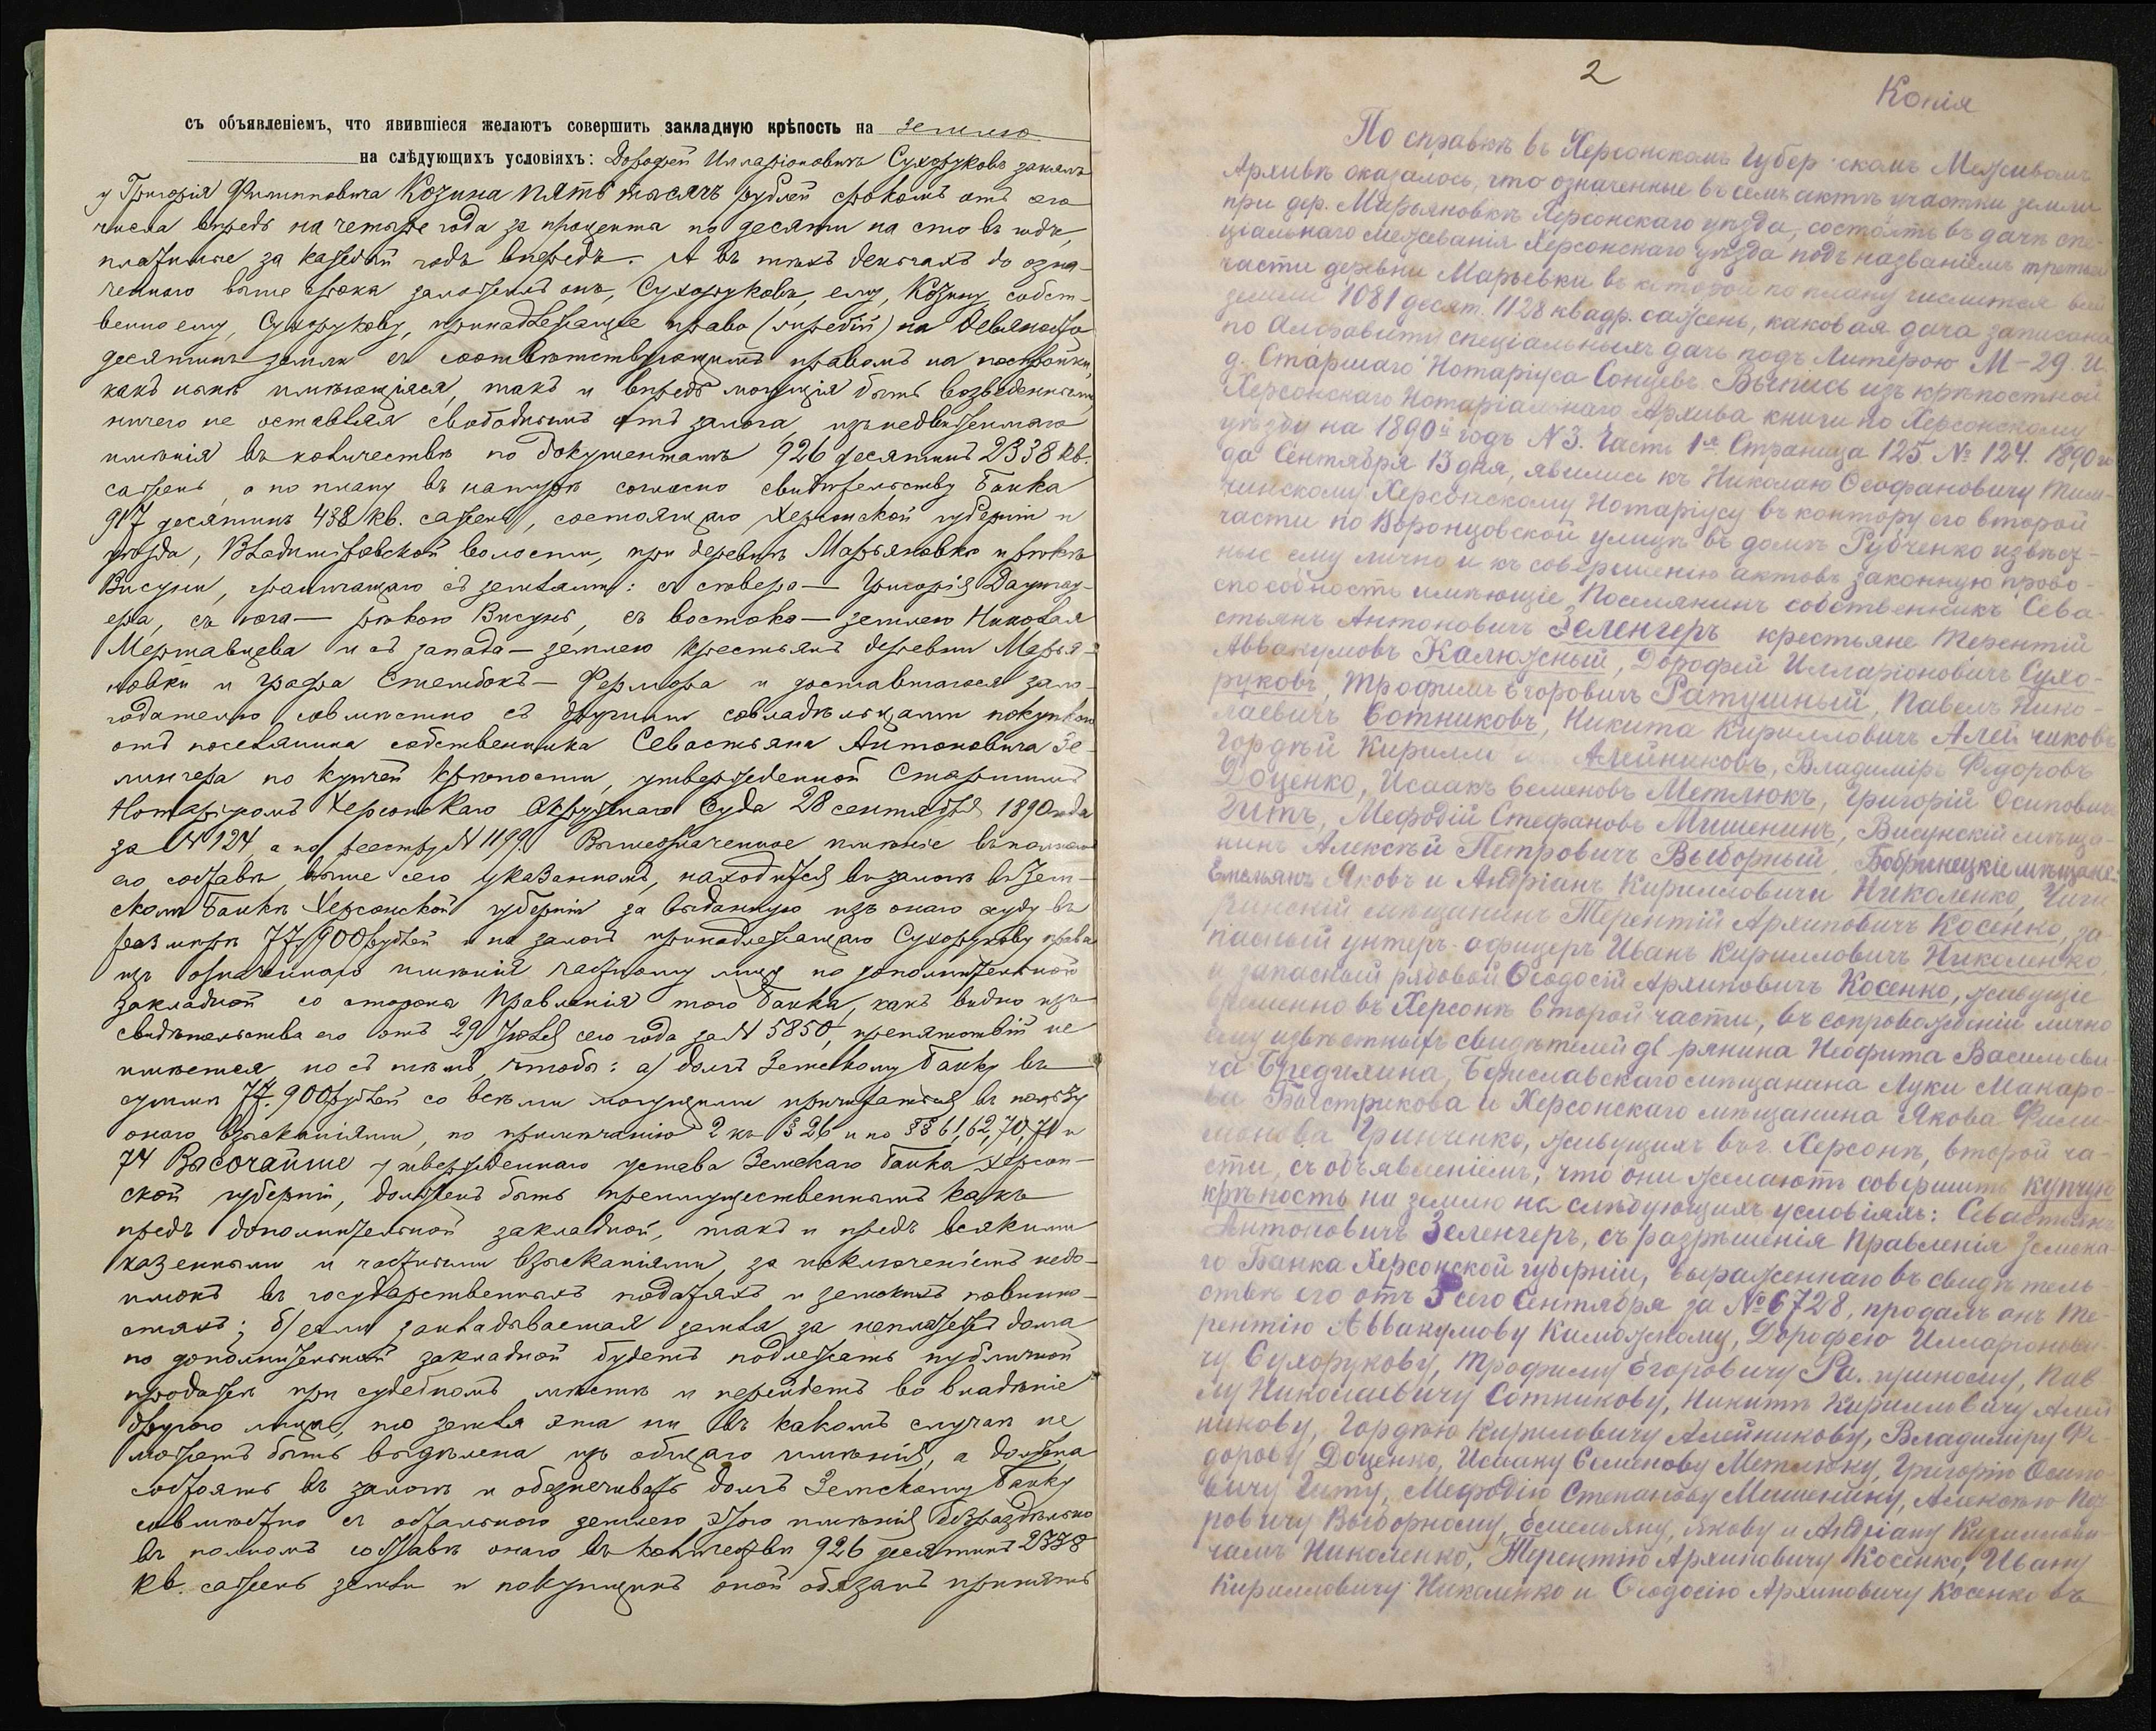 съ объявленіемъ, что явившіеся желаютъ совершить закладную крѣпость на землю
на слѣдующихъ условіяхъ: Дорофей Илларіоновичъ Сухоруковъ занялъ
у Григорія Филипповича Козина пять тысячъ рублей срокомъ отъ сего
числа впредь на четыре года за проценты по десяти на сто въ годъ,
платимые за каждый годъ впередъ. А въ тѣхъ деньгахъ до озна-
ченнаго выше срока заложилъ онъ, Сухоруковъ, ему, Козину, собст-
венно ему, Сухорукову, принадлежащее право (жребій) на девяносто
десятинъ земли съ соотвѣтствующимъ правомъ на постройки,
какъ нынѣ имѣющіяся, такъ и впредь могущія быть возведенными,
ничего не оставляя свободнымъ отъ залога, изъ недвижимаго
имѣнія въ количествѣ по документамъ 926 десятинъ 2338 кв.
сажень, а по плану въ натурѣ согласно свидѣтельству Банка
917 десятинъ 438 кв. сажень, состоящаго Херсонской губерніи и
уѣзда, Владиміровской волости, при деревнѣ Марьяновкѣ и рѣкѣ
Висуни, граничащаго съ землями: съ сѣвера — Григорія
съ юга — рѣкою Висунь, съ востока — землею Николая
Мертавцева и съ запада — землею крестьянъ деревни Марья-
новки и графа Стембокъ — Фермора и доставшагося зало-
годателю совмѣстно съ другими совладѣльцами покупкою
отъ поселянина собственника Севастьяна Антоновича Зе-
лингера по купчей крѣпости, утвержденной Старшимъ
Нотаріусомъ Херсонскаго Окружнаго Суда 28 сентября 1890 года
за № 124 а по реестру № 1199. Вышеозначенное имѣніе въ полномъ
его составѣ, выше сего указанномъ, находится въ залогѣ въ Зем-
скомъ Банкѣ Херсонской губерніи за выданную изъ онаго ссуду въ
размѣрѣ 77.900 рублей и на залогъ принадлежащаго Сухорукову права
изъ означеннаго имѣнія частному лицу по дополнительной
закладной со стороны Правленія того Банка, какъ видно изъ
свидѣтельства его отъ 29 Іюля сего года за № 5850, препятствій не
имѣется, но съ тѣмъ, чтобы: а) долгъ Земскому Банку въ
суммѣ 77.900 рублей со всѣми могущими причитаться въ пользу
онаго взысканіями, по примѣчанію 2 къ § 26 и по §§ 61, 62, 70, 71 и
74 Высочайше утвержденнаго устава Земскаго Банка Херсон-
ской губерніи, долженъ быть преимущественнымъ какъ
предъ дополнительной закладной, такъ и предъ всякими
казенными и частными взысканіями, за исключеніемъ недо-
имокъ въ государственныхъ податяхъ и земскихъ повинно-
стяхъ; б) если закладываемая земля за неплатежъ долга
по дополнительной закладной будетъ подлежать публичной
продажѣ при судебномъ мѣстѣ и перейдетъ во владѣніе
другого лица, то земля эта ни въ какомъ случаѣ не
можетъ быть выдѣлена изъ общаго имѣнія, а должна
состоять въ залогѣ и обезпечивать долгъ Земскому Банку
совмѣстно съ остальною землею этого имѣнія безраздѣльно
въ полномъ составѣ онаго въ количествѣ 926 десятинъ 2338
кв. сажень земли и покупщикъ оной обязанъ принять
2
Копія
По справкѣ въ Херсонскомъ Губер скомъ Межевомъ
Архивѣ оказалось, что означенные въ семъ актѣ участки земли
при дер. Марьяновкѣ Херсонскаго уѣзда, состоятъ въ дачѣ спе-
ціальнаго межеванія Херсонскаго уѣзда подъ названіемъ третьей
части деревни Марьевки въ которой по плану числится всей
земли 1081 десят. 1128 квадр. сажень, каковая дача записана
по Алфавиту спеціальныхъ дачъ подъ Литерою М-29. И.
д. Старшаго Нотаріуса Сонцевъ. Выпись изъ крѣпостной
Херсонскаго Нотаріальнаго Архива книги по Херсонскому
уѣзду на 1890й годъ № 3. Часть 1я Страница 125 № 124. 1890 го-
да Сентября 13 дня, явились къ Николаю Ѳеофановичу Тим-
чинскому Херсонскому Нотаріусу въ контору его второй
части по Воронцовской улицѣ въ домѣ Рубченко извѣст-
ные ему лично и къ совершенію актовъ законную право-
способность имѣющіе, Поселянинъ собственникъ Сева-
стьянъ Антоновичъ Зеленгеръ крестьяне Терентій
Аввакумовъ Калюжный, Дорофей Илларіоновичъ Сухо-
руковъ, Трофимъ Егоровичъ Ратушный, Павелъ Нико-
лаевичъ Сотниковъ, Никита Кирилловичъ Алей никовъ
Гордѣй Кирилл Алейниковъ, Владиміръ Федоровъ
Доценко, Исаакъ Семеновъ Метлюкъ, Григорій Осиповичъ
Гитъ, Мефодій Стефановъ Мишенинъ, Висунскій мѣща-
нинъ Алексѣй Петровичъ Выборный, Бобринецкіе мѣщане:
Емельянъ Яковъ и Андріанъ Кирилловичи Николенко, Чиги
ринскій мѣщанинъ Терентій Архиповичъ Косенко, за-
пасный унтеръ-офицеръ Иванъ Кирилловичъ Николенко
и запасный рядовой Ѳеодосій Архиповичъ Косенко, живущіе
временно въ Херсонѣ второй части, въ сопровожденіи лично
ему извѣстныхъ свидѣтелей дв рянина Неофита Васильеви-
ча Бредихина, Бериславскаго мѣщанина Луки Макаро-
ва Быстрикова и Херсонскаго мѣщанина Якова Фили-
монова Гринченко, живущихъ въ г. Херсонѣ, второй ча-
сти, съ объявленіемъ, что они желаютъ совершить купчую
крѣпость на землю на слѣдующихъ условіяхъ: Севастьянъ
Антоновичъ Зеленгеръ, съ разрѣшенія Правленія Земска-
го Банка Херсонской губерніи, выраженнаго въ свидѣтель-
ствѣ его отъ 5 сего Сентября за № 6728, продалъ онъ Те-
рентію Аввакумову Калюжному, Дорофею Илларіонови-
чу Сухорукову, Трофиму Егоровичу Ра. ушному, Пав
лу Николаевичу Сотникову, Никитѣ Кирилловичу Алей
никову, Гордѣю Кириловичу Алейникову, Владиміру Фе-
дорову Доценко, Исааку Семенову Метлюку, Григорію Осипо-
вичу Гиту, Мефодію Степанову Мишенину, Алексѣю Пет
ровичу Выборному, Емельяну, Якову и Андріану Кириллови-
чамъ Николенко, Терентію Архиповичу Косенко, Ивану
Кирилловичу Николенко и Ѳеодосію Архиповичу Косенко въ